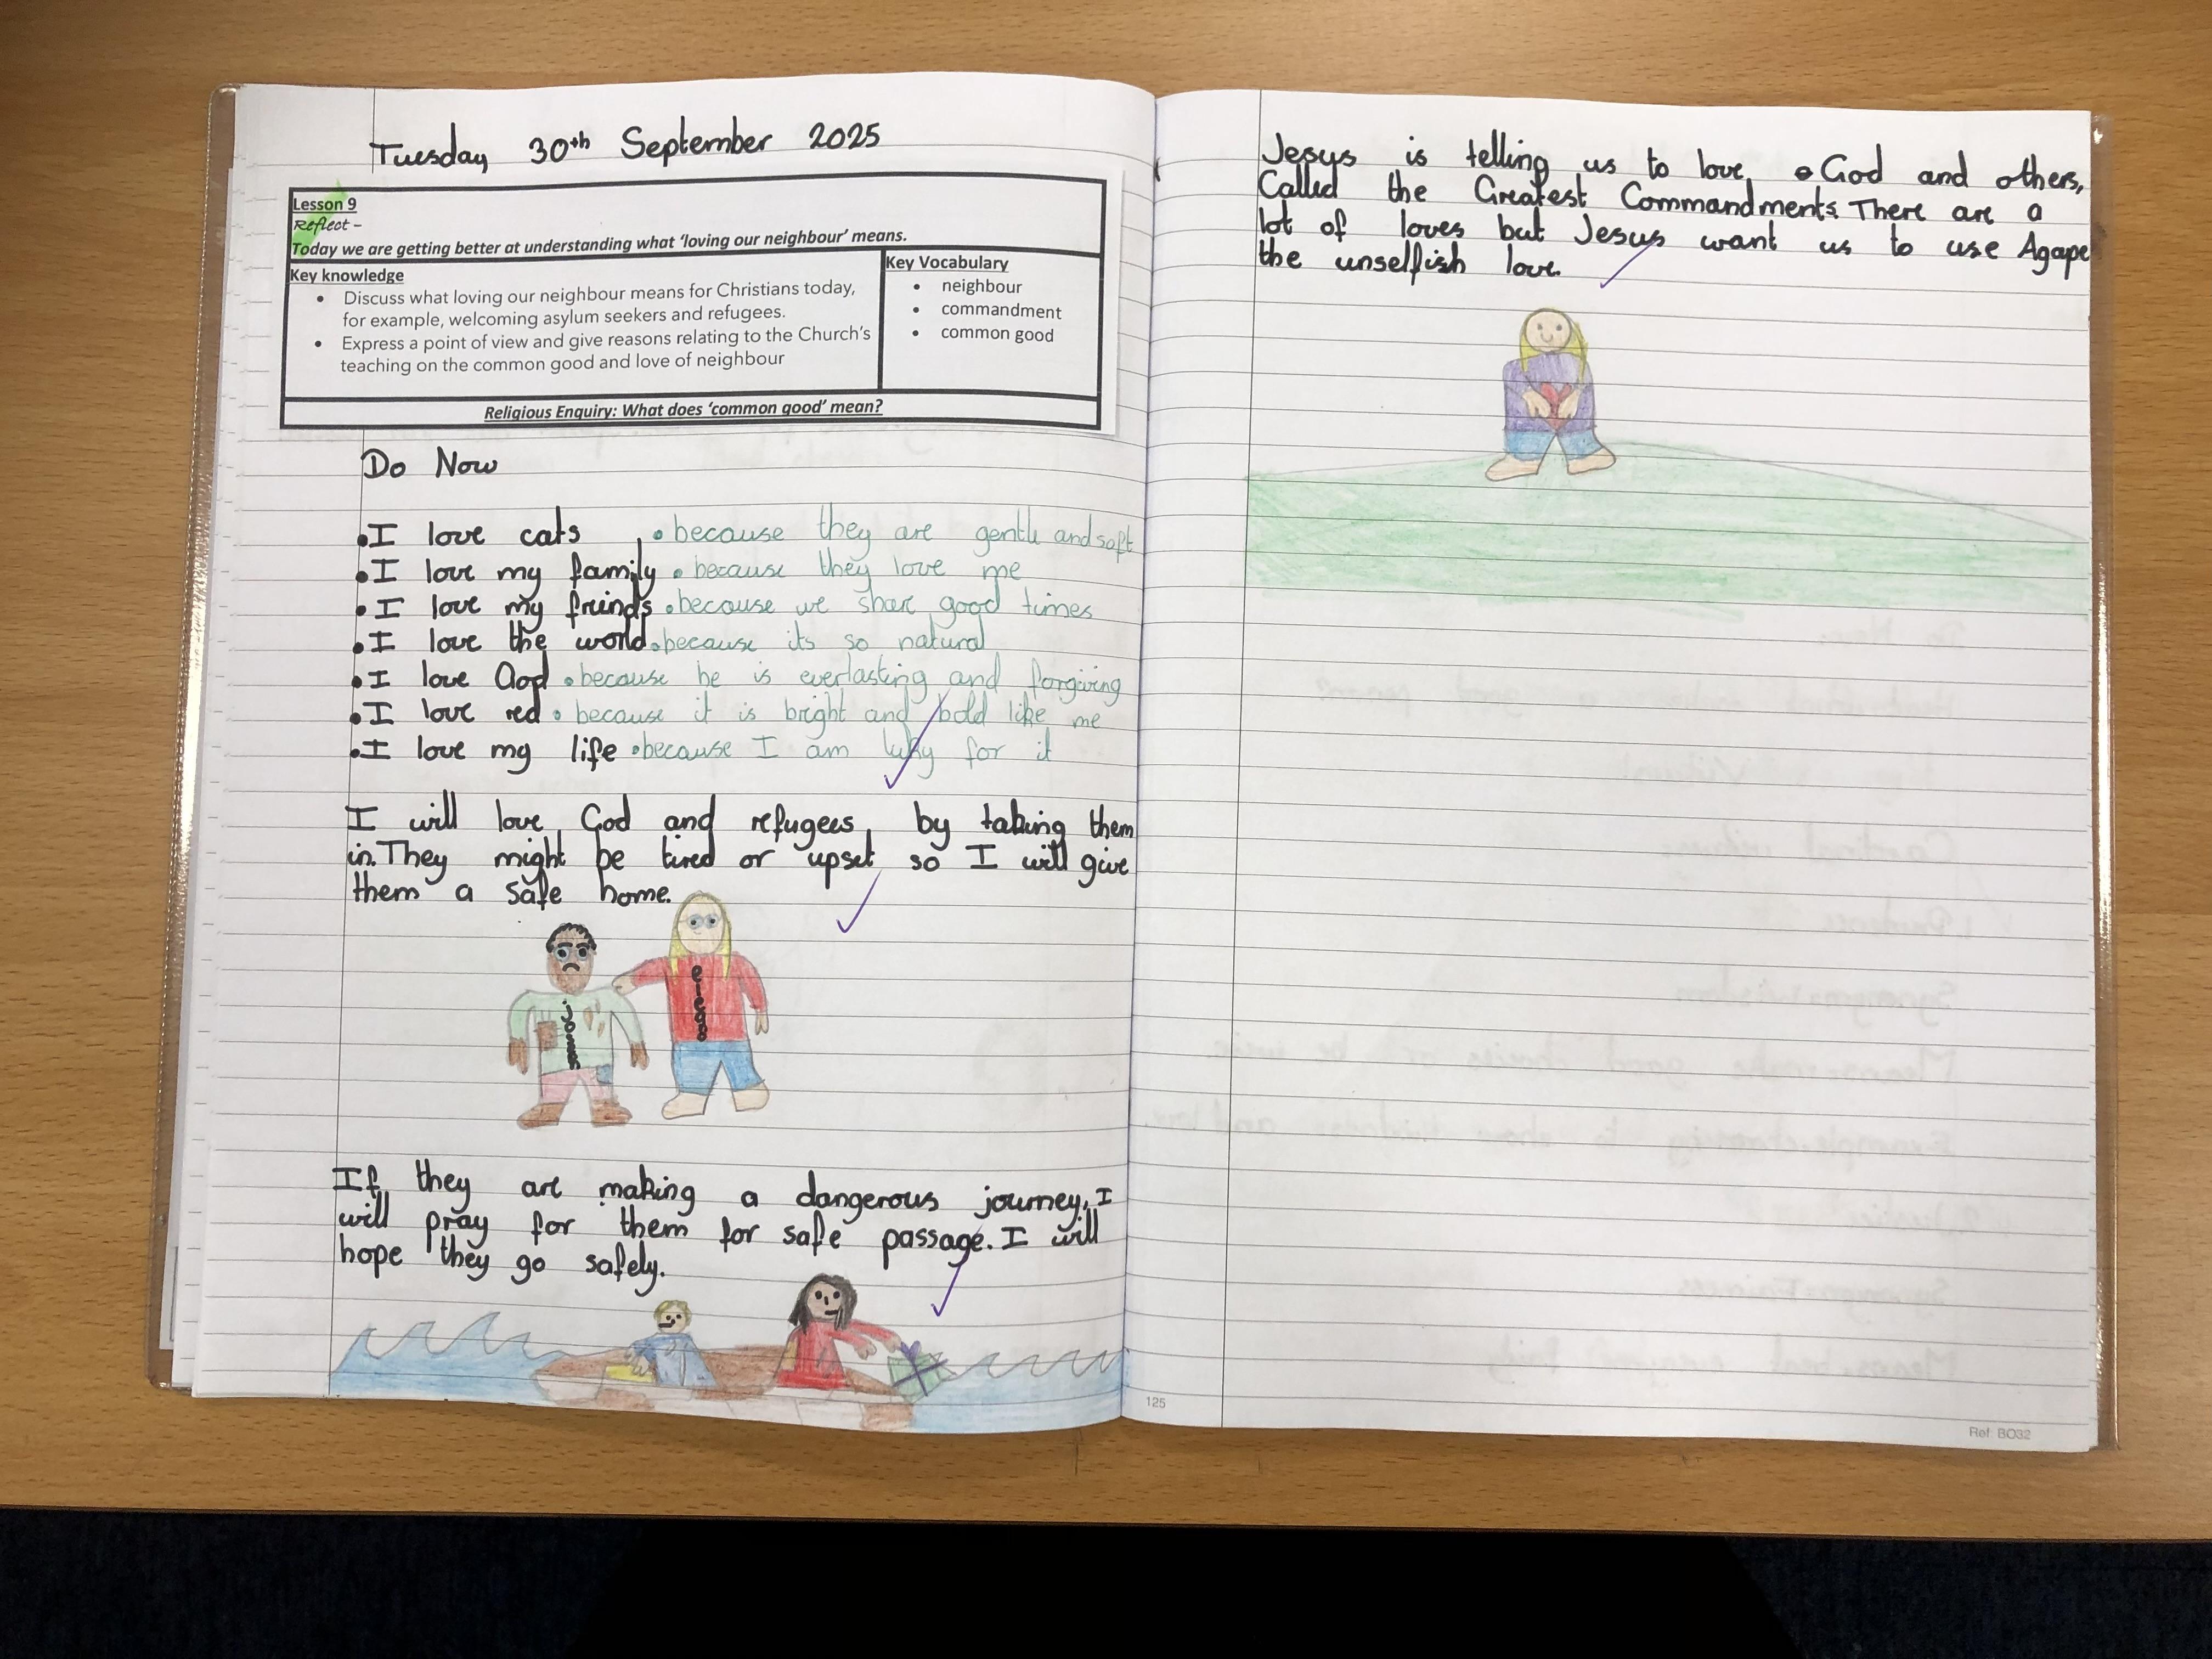 Tuesday 30th September 2025
Lesson 9
Reflect –
Today we are getting better at understanding what 'loving our neighbour' means.
Key knowledge
• Discuss what loving our neighbour means for Christians today,
for example, welcoming asylum seekers and refugees.
• Express a point of view and give reasons relating to the Church's
teaching on the common good and love of neighbour
Key Vocabulary
• neighbour
• commandment
• common good
Religious Enquiry: What does 'common good' mean?
Do Now
• I love cats • because they are gentle and soft
• I love my family • because they love me
• I love my freinds • because we share good times
• I love the world • because its so natural
• I love God • because he is everlasting and forgiving
• I love red • because it is bright and bold like me
• I love my life • because I am luky for it
I will love God and refugees, by taking them
in. They might be tired or upset so I will give
them a safe home.
If they are making a dangerous journey, I
will pray for them for safe passage. I will
hope they go safely.
Jesus is telling us to love God and others,
Called the Greatest Commandments. There are a
lot of loves but Jesus want us to use Agape
the unselfish love.
125
Ref BO32